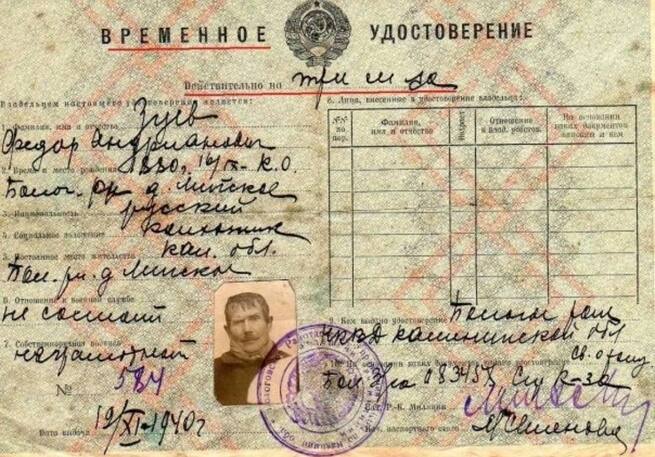 ВРЕМЕННОЕ УДОСТОВЕРЕНИЕ
Действительно на три м-ца
Владельцем настоящего удостоверения является:
1. Фамилия, имя и отчество Зуев
Федор Андрианович
2. Время и место рождения 1880, 16/IX- К.О.
Болог. р-н д. Мипское
3. Национальность русский
4. Социальное положение колхозник
5. Постоянное место жительства кал. обл.
Бол. рн. д
6. Отношение к военной службе
не состоит
7. Собственноручная подпись
неграмотный
№ 584
Дата выдачи 19/XI-1940г
8. Лица, внесенные в удостоверение владельца:
№№ по пор.
Фамилия, имя и отчество
Возраст
Отношение к влад. удостов.
На основании каких документов вписаны и кем
9. Кем выдано удостоверение
НКВД Калининской обл
10. На основании каких документов выдано удостоверение
Нач. Р.-К. Милиции
Нач. паспортного стола Семенова